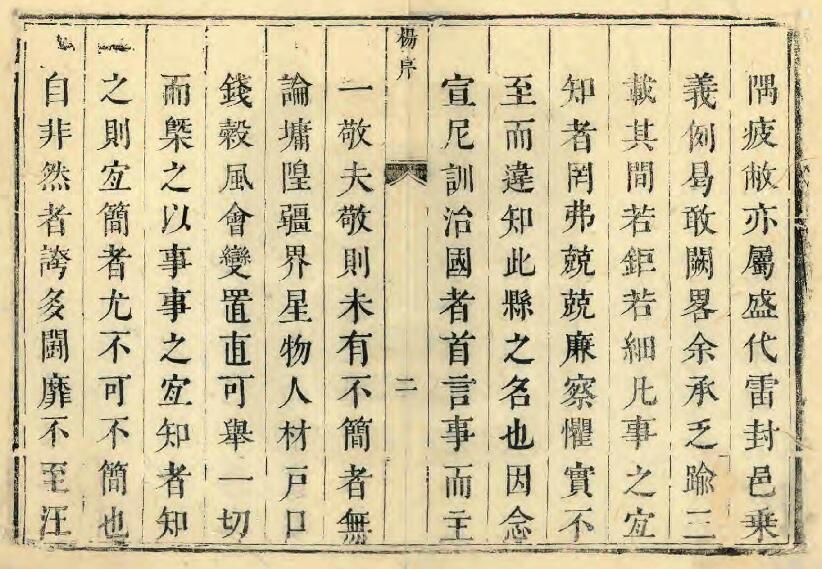 隅疲敝亦屬盛代雷封邑乗
義例曷敢闕畧余承乏踰三
載其間若鉅若細凡事之宐
知者罔弗兢兢廉察懼實不
至而違知此縣之名也因念
宣尼訓治國者首言事而主
楊序
二
一敬夫敬則未有不簡者無
論墉隍疆界星物人材戸口
錢穀風會變置直可舉一切
而槩之以事事之宐知者知
之則宐簡者尤不可不簡也
自非然者誇多鬭靡不至汪